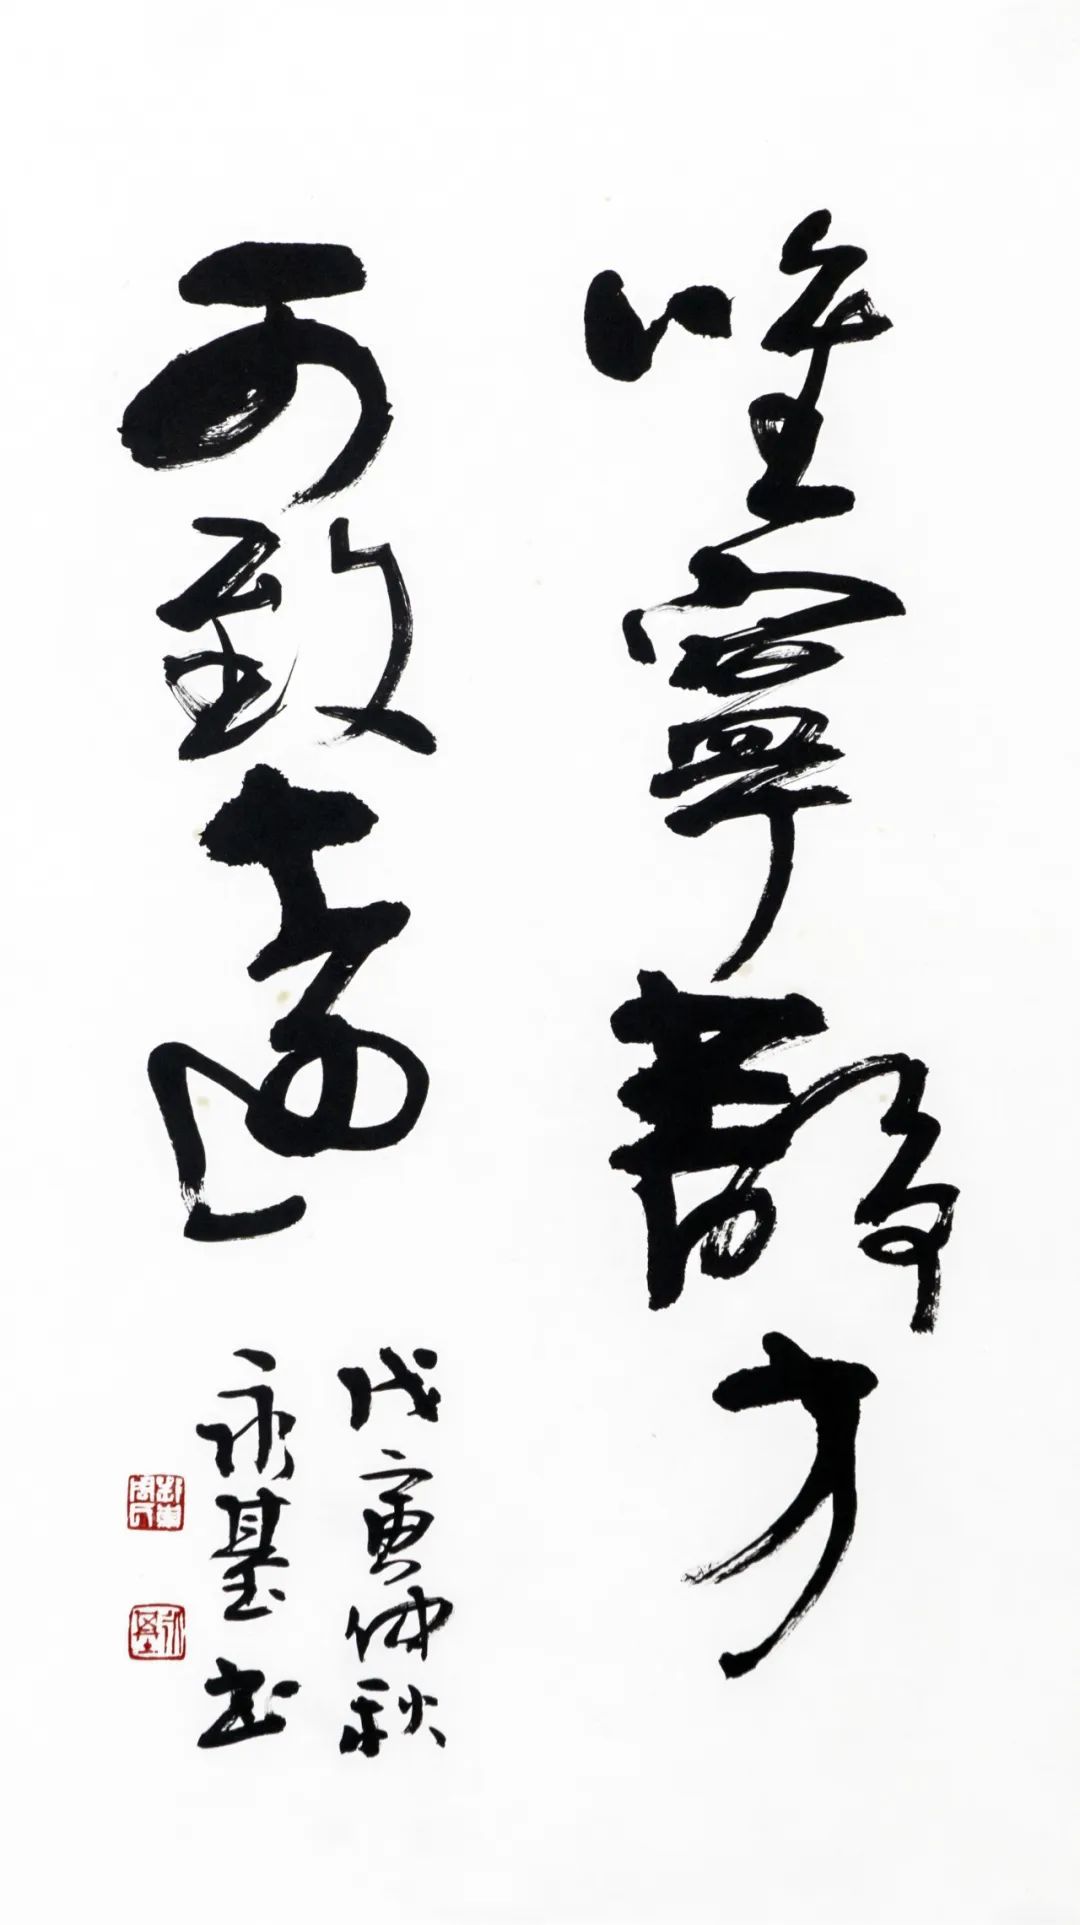 唯寧靜方
可致遠
戊寅仲秋
永基書